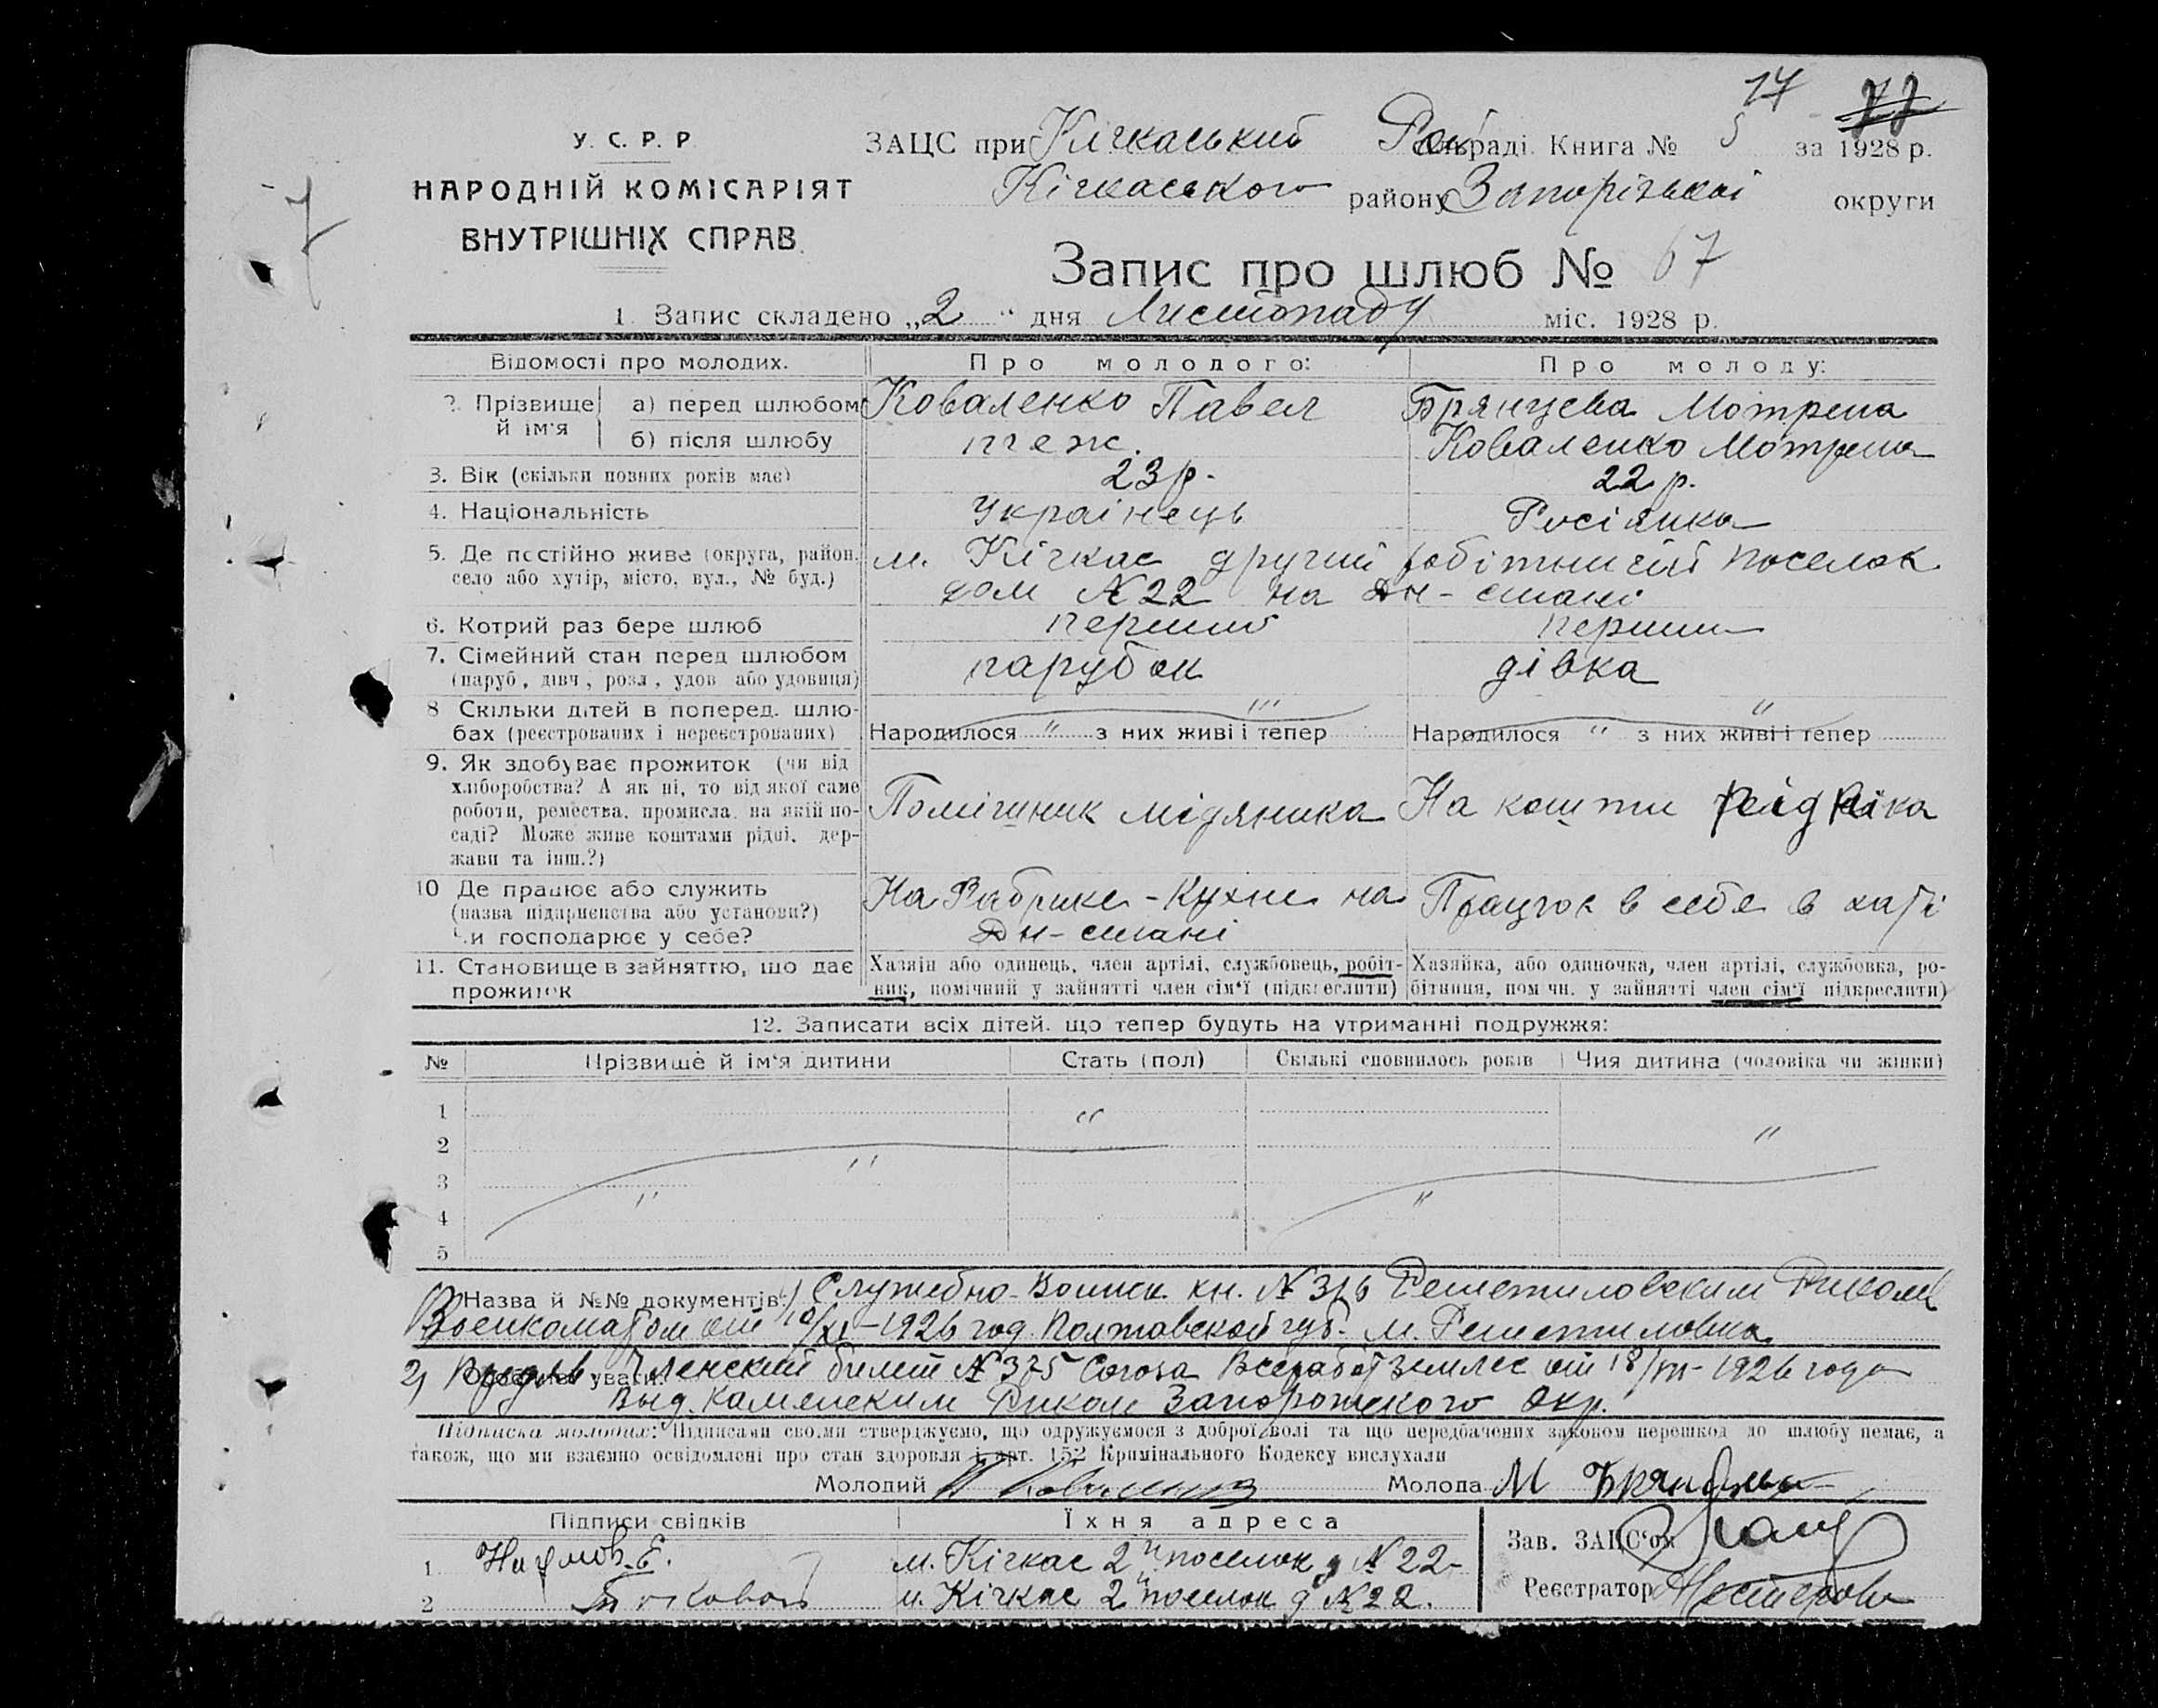 17 77
У. С. Р. Р.
ЗАЦС при Кічкаський Рай сельраді. Книга № 5 за 1928 р.
НАРОДНІЙ КОМІСАРІЯТ
Кічкаського району Запорізької округи
ВНУТРІШНІХ СПРАВ.
7
Запис про шлюб № 67
1. Запис складено „2“ дня Листопаду міс. 1928 р.
Відомості про молодих. Про молодого: Про молоду:
2. Прізвище й ім'я а) перед шлюбом Коваленко Павел Брянцева Мотрена
б) після шлюбу теж. Коваленко Мотрена
3. Вік (скільки повних років має) 23 р. 22 р.
4. Національність Українець Росіянка
5. Де постійно живе (округа, район, м. Кічкас другий робітничий поселок
село або хутір, місто, вул., № буд.) дом № 22 на Дн-стані
6. Котрий раз бере шлюб перший перший
7. Сімейний стан перед шлюбом парубок дівка
(паруб., дівч., розл., удов. або удовиця)
8 Скільки дітей в поперед. шлю-
бах (реєстрованих і нереєстрованих) Народилося " з них живі і тепер Народилося " з них живі і тепер
9. Як здобуває прожиток (чи від
хліборобства? А як ні, то від якої саме
роботи, ремества, промисла, на якій по- Помішник мідяника На кошти
саді? Може живе коштами рідні, дер-
жави та інш.?)
10 Де працює або служить На Фабрике-Кухне на Працює в себе в хаті
(назва підприємства або установи?)
Чи господарює у себе? Дн-стані
11. Становище в зайняттю, що дає Хазяїн або одинець, член артілі, службовець, робіт- Хазяйка, або одиночка, член артілі, службовка, ро-
прожиток ник, помічний у зайнятті член сім'ї (підкреслити) бітниця, помічн. у зайнятті член сім'ї підкреслити)
12. Записати всіх дітей, що тепер будуть на утриманні подружжя:
№ Прізвище й ім'я дитини Стать (пол) Скількі сповнилось років Чия дитина (чоловіка чи жінки)
1
2
3
4
5
Назва й №№ документів: 1) Служебно-Воинск. кн. № 316 Решетиловским Риком
Военкоматом от 10/XI-1926 год Полтавской губ. м. Решетиловка
2) Особливі уваги: Предъяв. Членский билет № 375 Союза Всеработземлес от 18/VII-1926 года
Выд. Каменским Риком Запорожского Окр.
Підписка молодих: Підписами своїми стверджуємо, що одружуємося з доброї волі та що передбачених законом перешкод до шлюбу немає, а
також, що ми взаємно освідомлені про стан здоровля і арт. 152 Кримінального Кодексу вислухали
Молодий П Коваленко Молода М
Підписи свідків Їхня адреса
Зав. ЗАЦС'ом
1 Наумов. Е. м. Кічкас 2й поселок д № 22-
Реєстратор Нестерова
2 м. Кічкас 2й поселок д № 22.